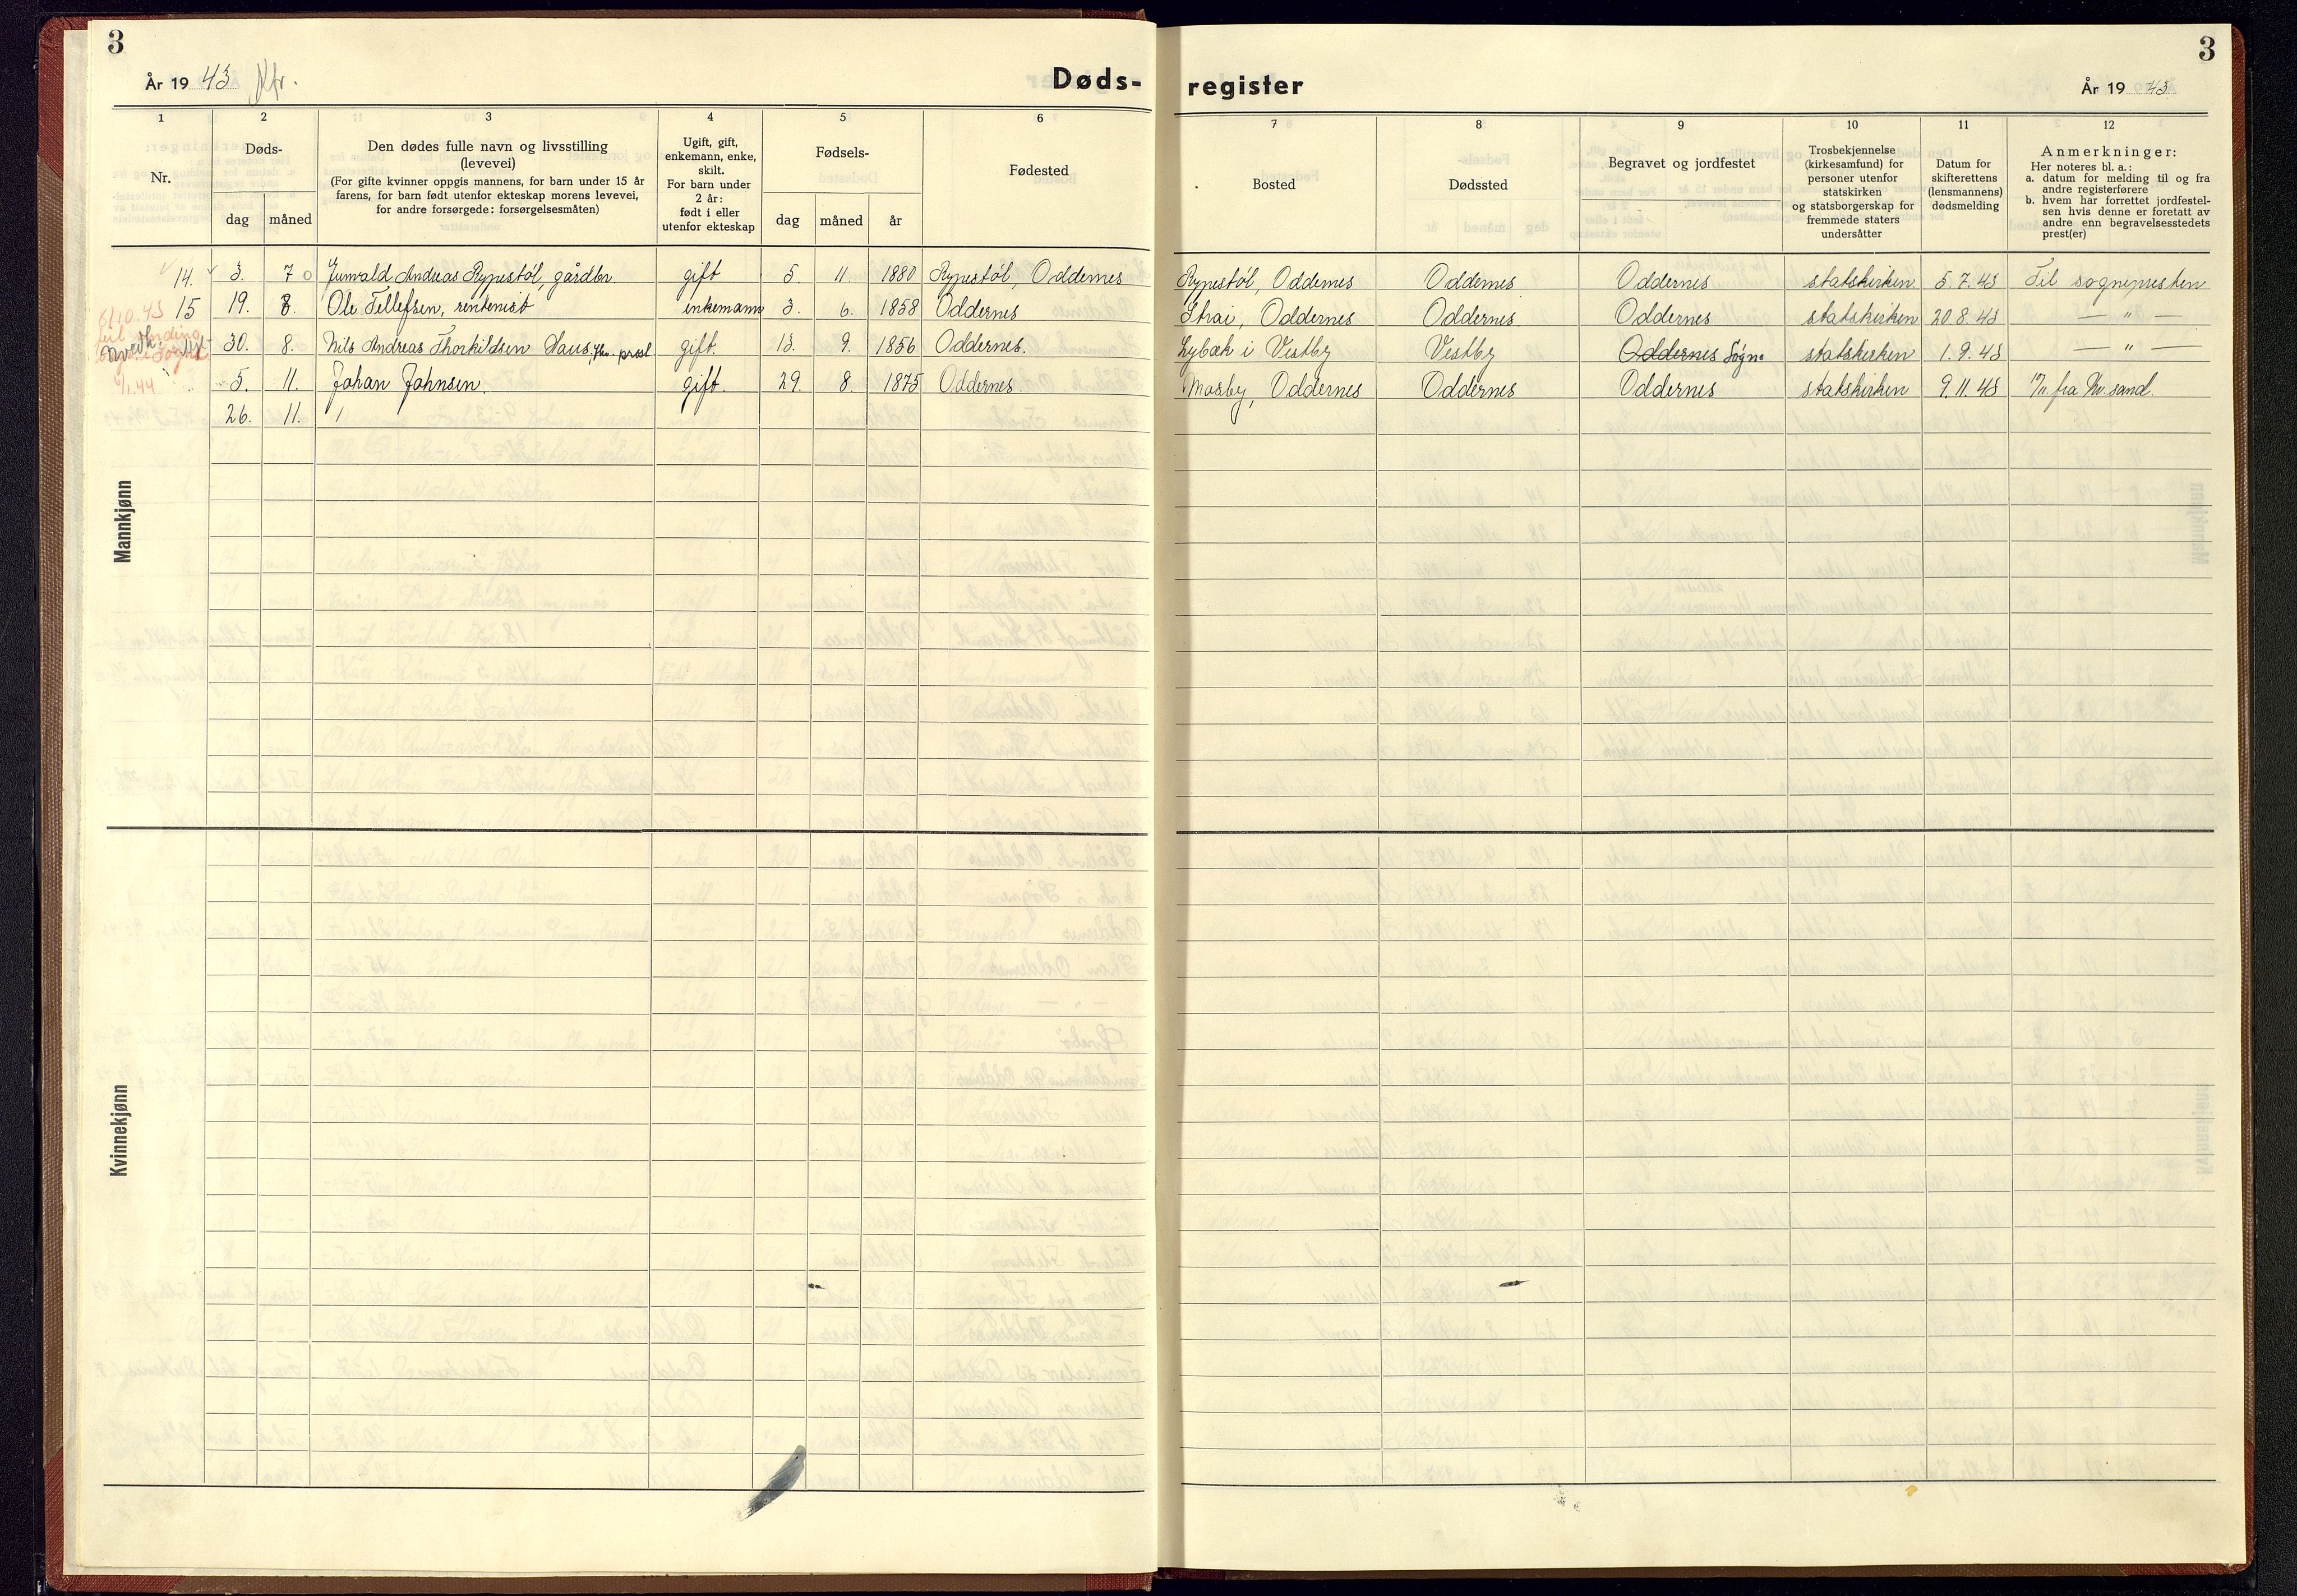 3
År 1943
Døds-
register
År 1943
3
1 2 3 4 5 6 7 8 9 10 11 12
Nr.
Døds-
dag måned
Den dødes fulle navn og livsstilling
(levevei)
(For gifte kvinner oppgis mannens, for barn under 15 år
farens, for barn født utenfor ekteskap morens levevei,
for andre forsørgede: forsørgelsesmåten)
Ugift, gift,
enkemann, enke,
skilt.
For barn under
2 år:
født i eller
utenfor ekteskap
Fødsels-
dag måned år
Fødested
Bosted
Dødssted
Begravet og jordfestet
Trosbekjennelse
(kirkesamfund) for
personer utenfor
statskirken
og statsborgerskap for
fremmede staters
undersåtter
Datum for
skifterettens
(lensmannens)
dødsmelding
Anmerkninger:
Her noteres bl. a.:
a. datum for melding til og fra
andre registerførere
b. hvem har forrettet jordfestel-
sen hvis denne er foretatt av
andre enn begravelsesstedets
prest(er)
14. 3. 7 Gunvald Andreas Rypestøl, gårdbr. gift 5. 11. 1880 Rypestøl, Oddernes Rypestøl, Oddernes Oddernes Oddernes statskirken 5.7.43 Til sognepresten
15 19. 8. Ole Tellefsen, rentenist enkemann 3. 6. 1858 Oddernes Strai, Oddernes Oddernes Oddernes statskirken 20.8.43 — " —
30. 8. Nils Andreas Thorkildsen Haus, gift. 13. 9. 1856 Oddernes. Lybæk i Vestby Vestby Oddernes Søgne statskirken 1.9.43 — " —
5. 11. Johan Johnsen. gift. 29. 8. 1875 Oddernes. Mosby, Oddernes Oddernes Oddernes statskirken 9.11.43 fra Kr.sand.
26. 11.
Mannkjønn
Kvinnekjønn